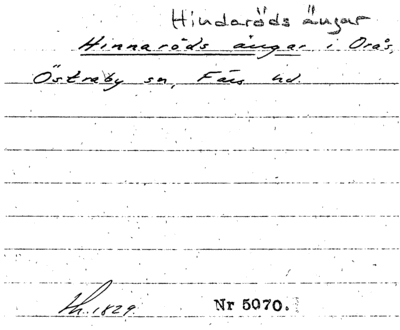 Hindaröds ängar
Hinnaröds ängar i Orås,
Östraby sn, Färs hd.
1829. Nr 5070.